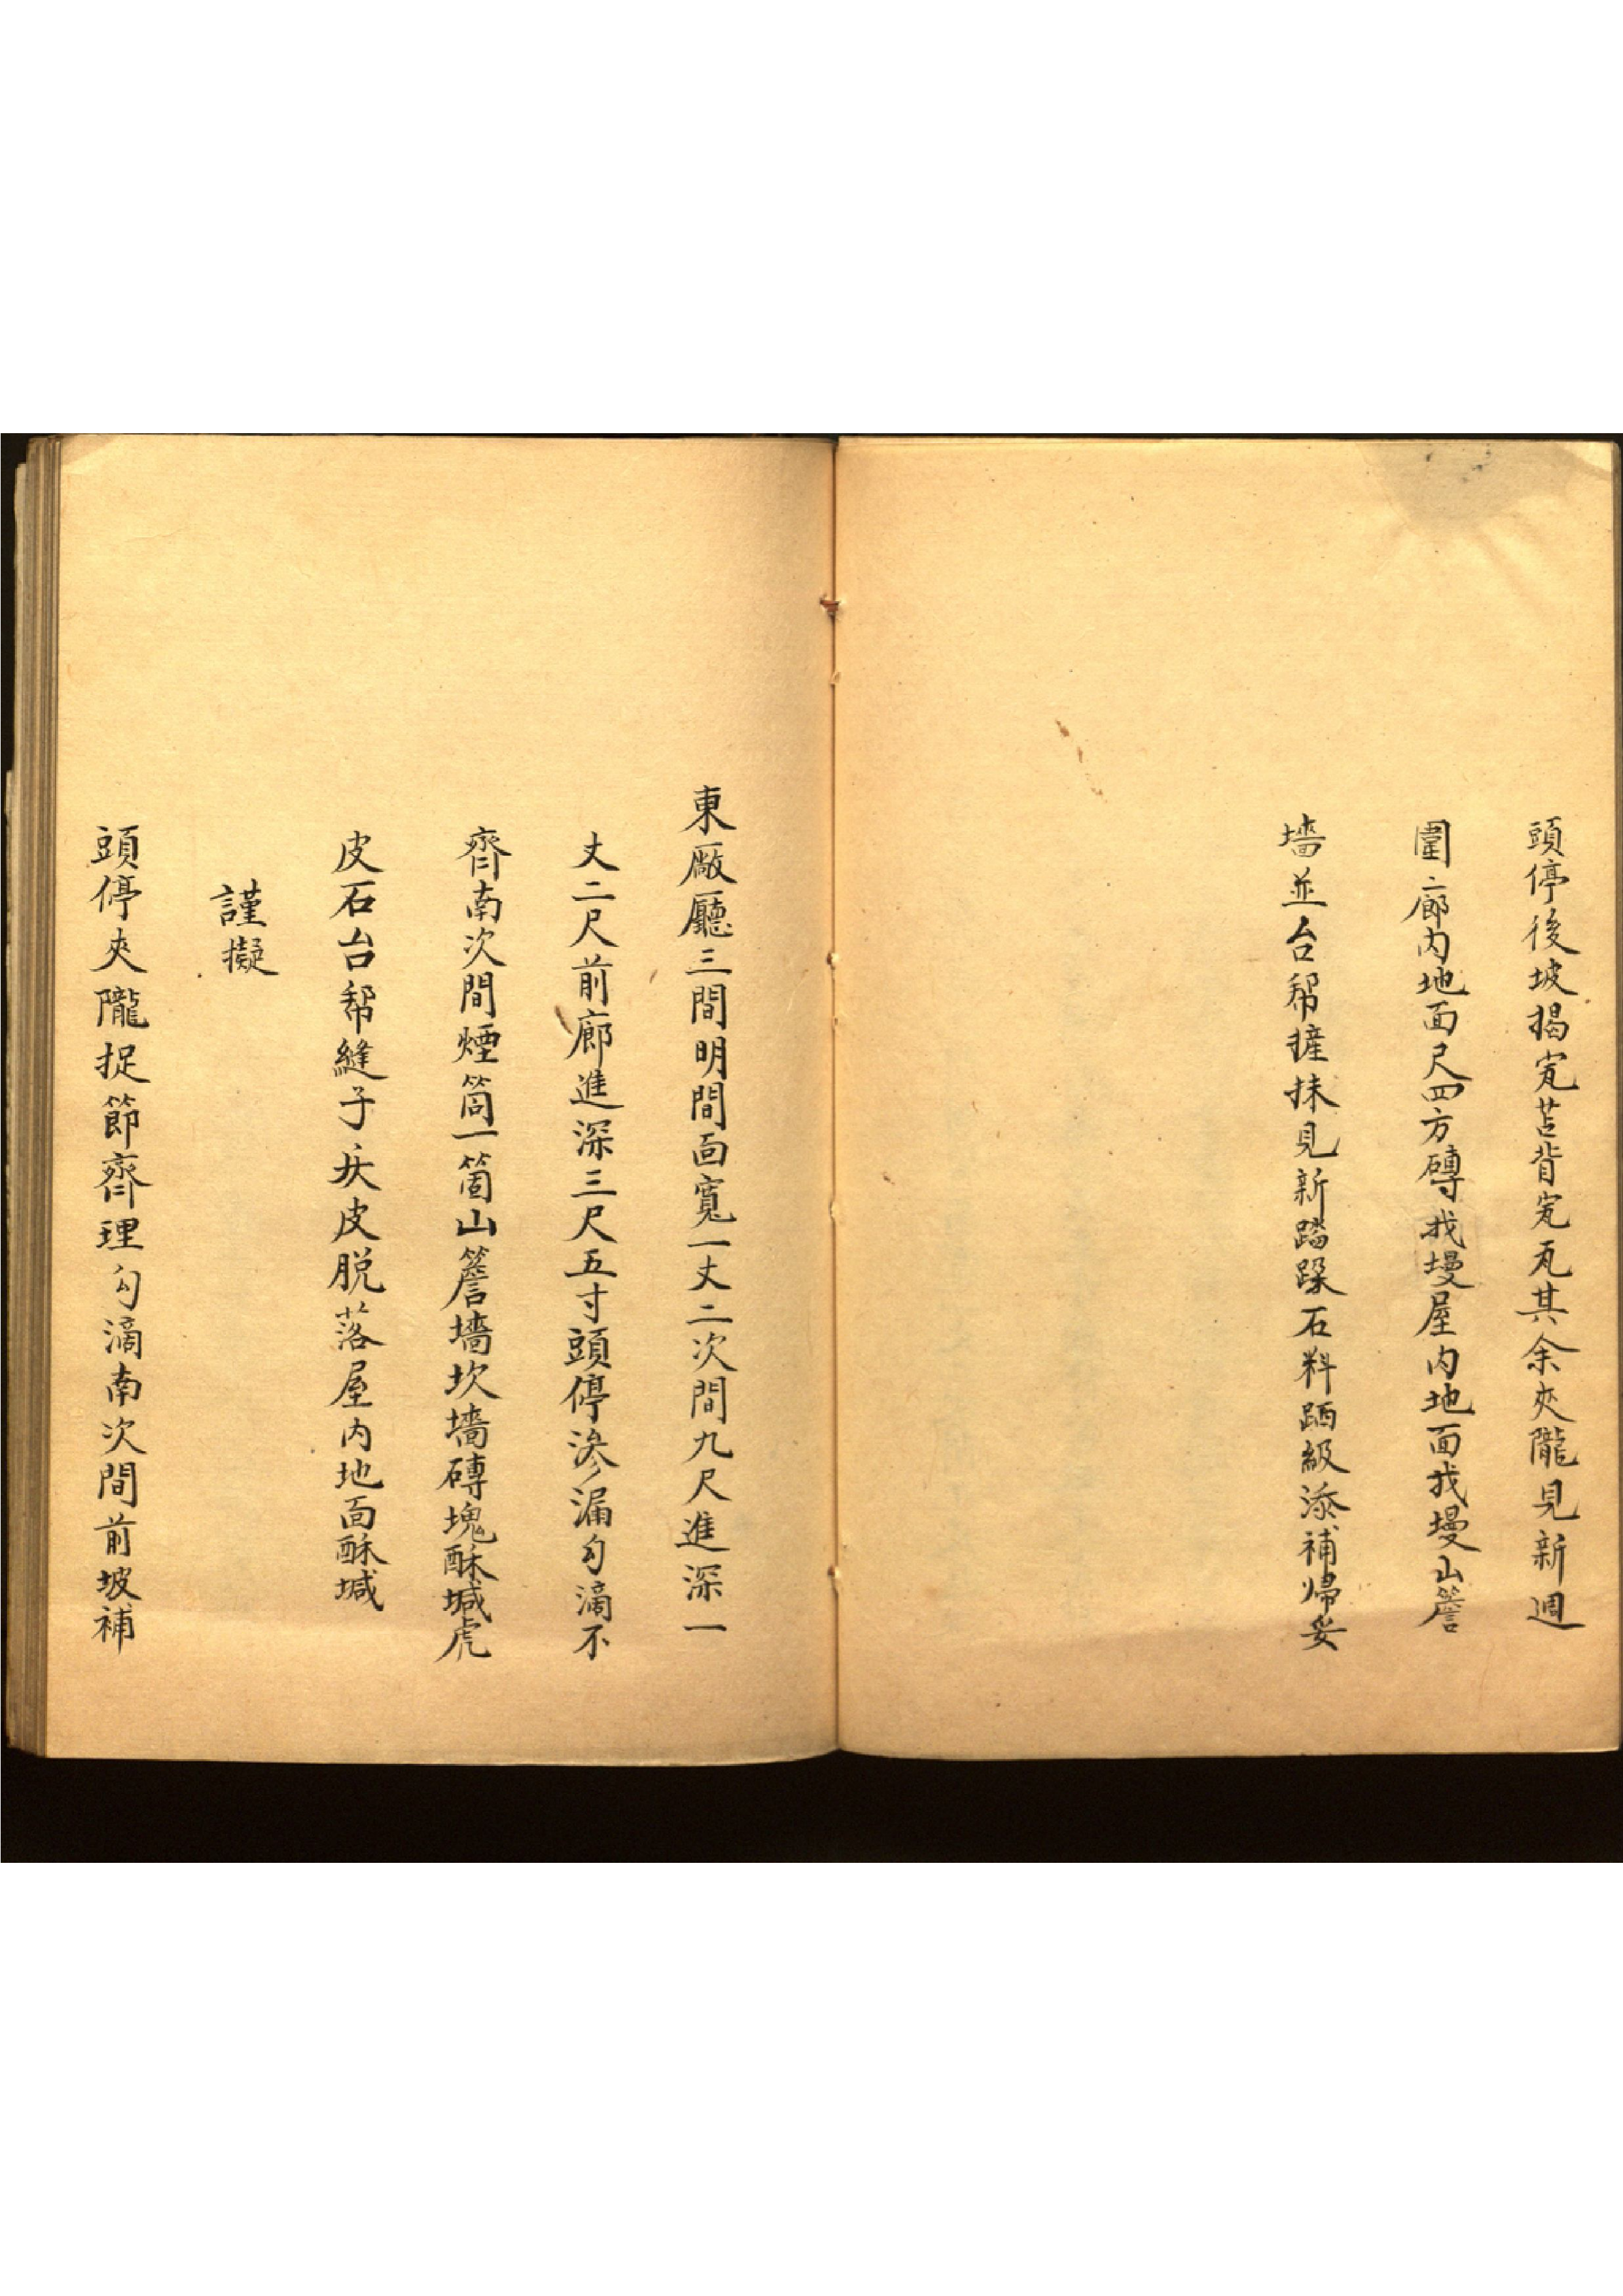 頭停後坡揭㝊苫背㝊瓦其余夾隴見新週
圍廊内地面尺四方磚找墁屋内地面找墁山簷
墻並台帮摌抹見新踏跺石料跴級添補帰安
東廠廳三間明間面寬一丈二次間九尺進深一
丈二尺前廊進深三尺五寸頭停滲漏勾滴不
齊南次間煙筒一箇山簷墻坎墻磚塊酥堿虎
皮石台帮縫子灰皮脱落屋内地面酥堿
謹擬
頭停夾隴捉節齊理勾滴南次間前坡補